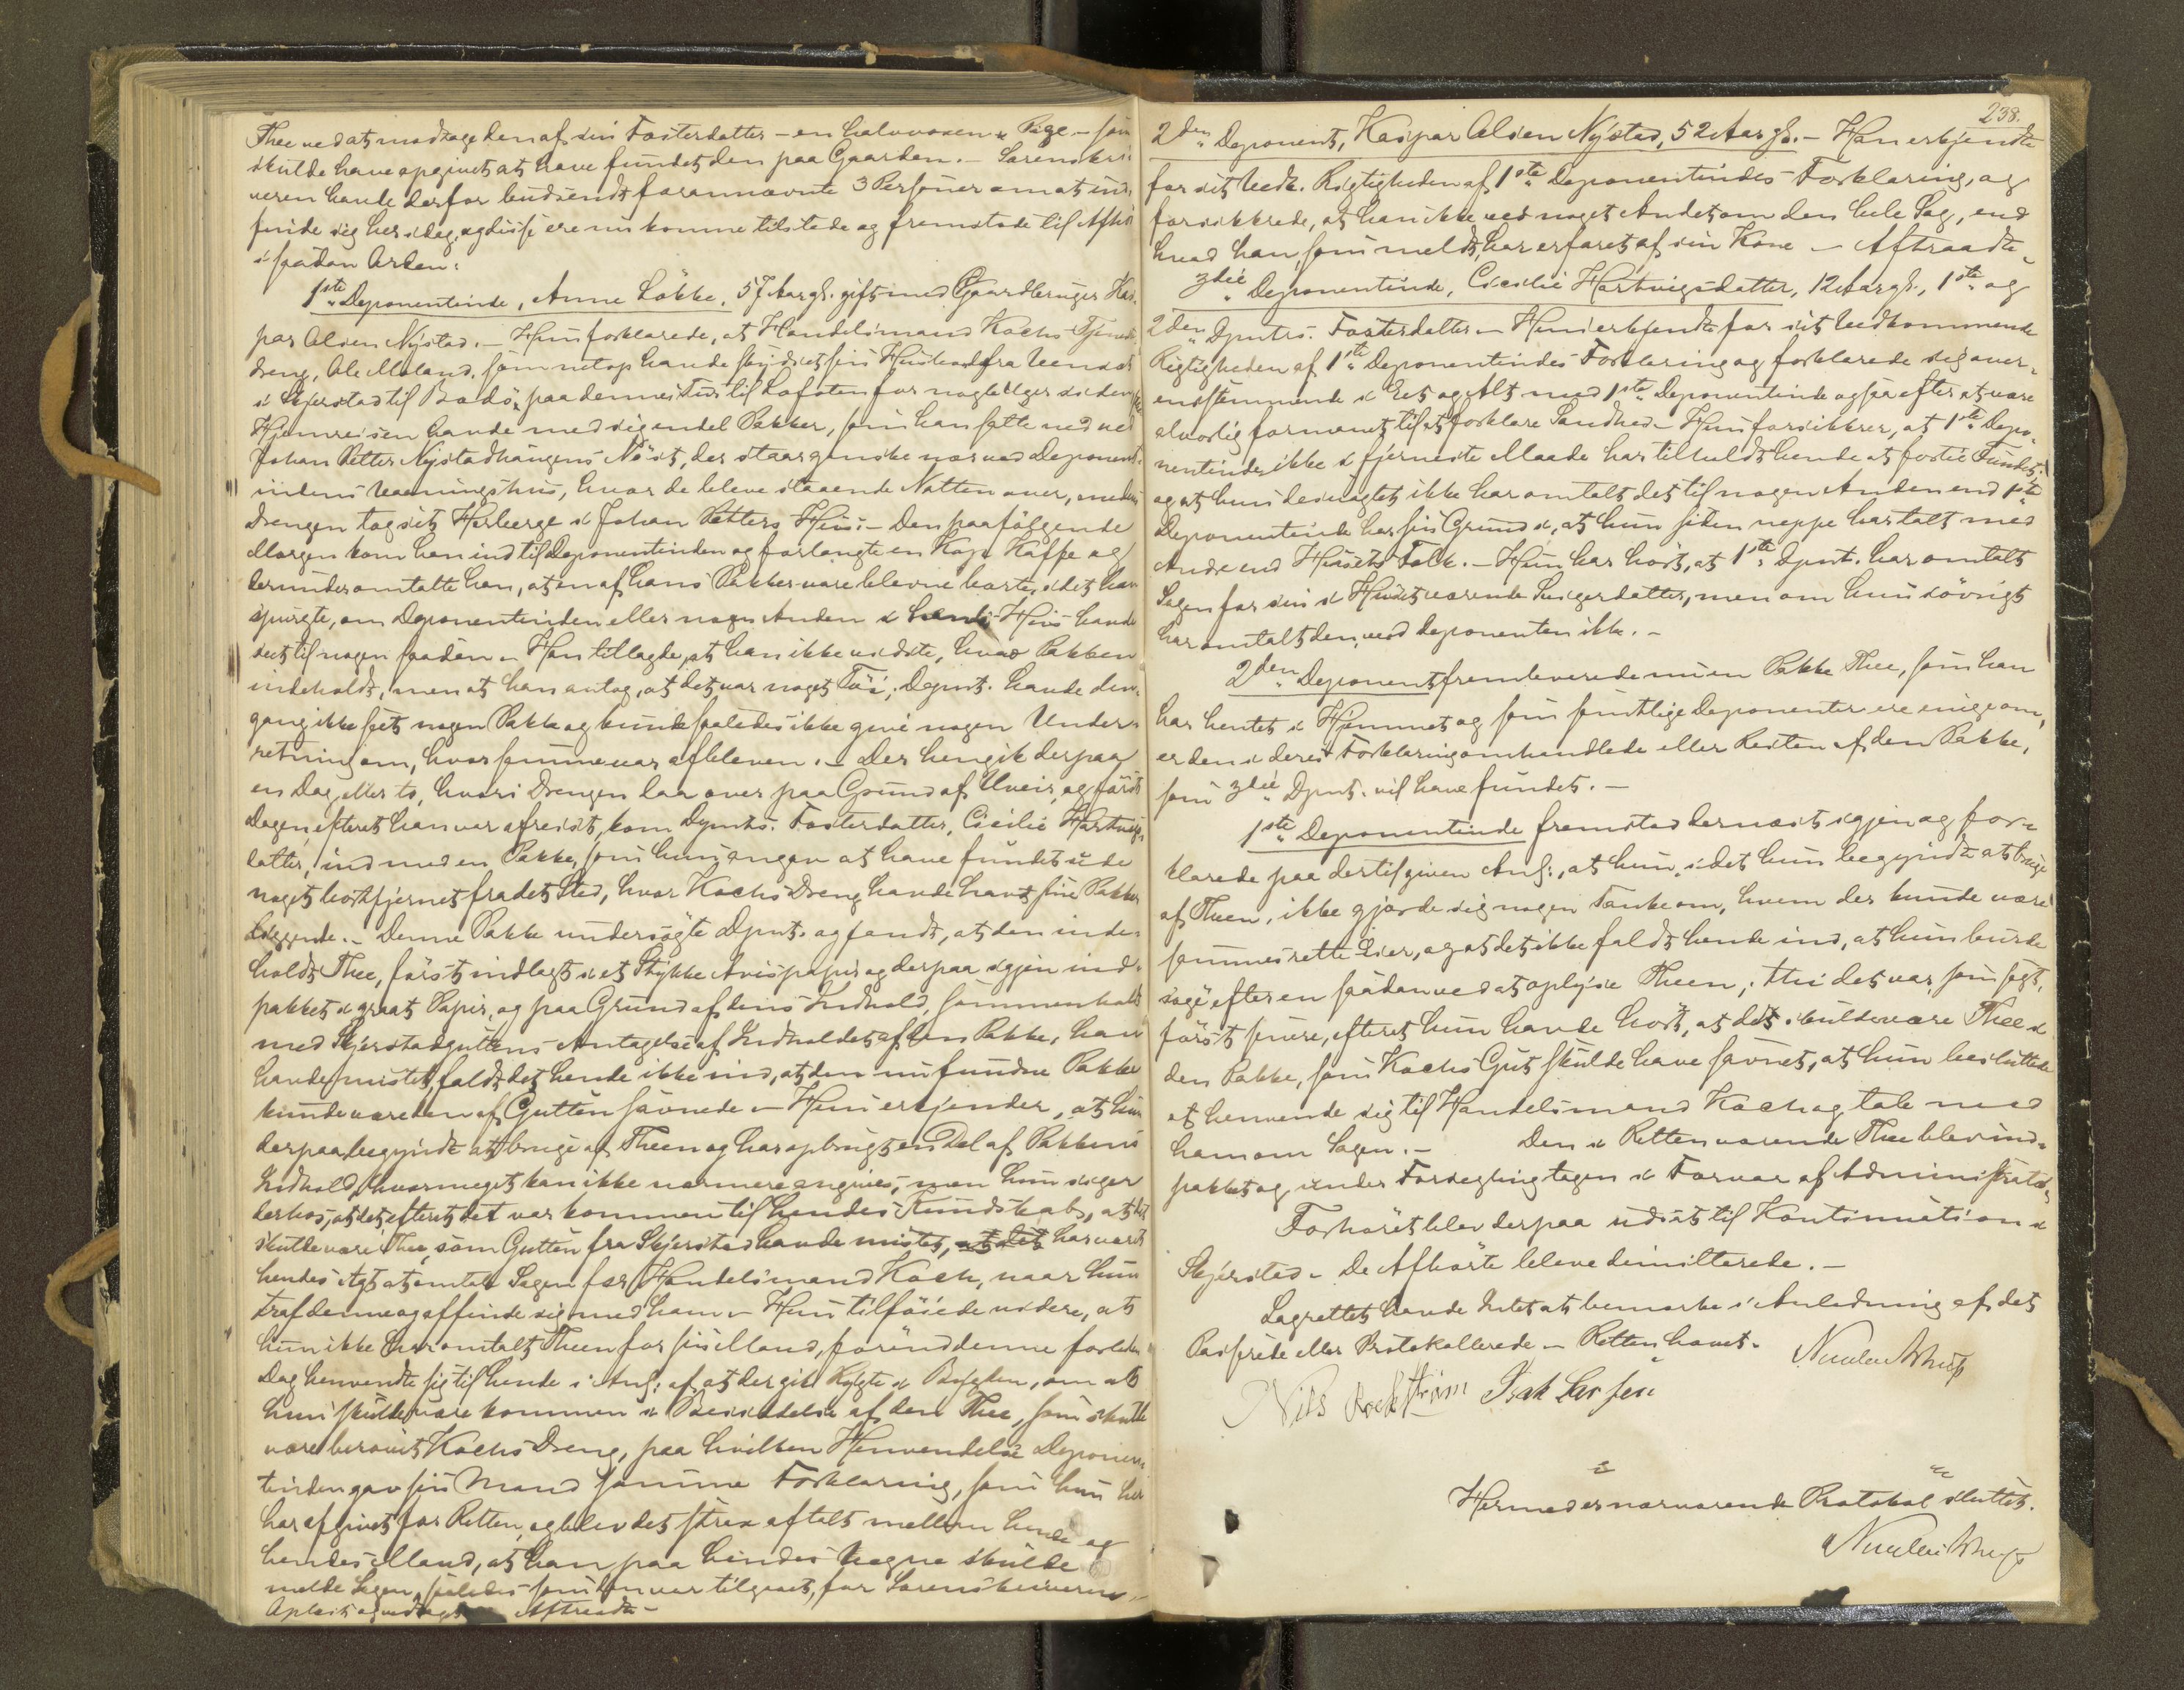 Thee ved at modtage den af sin Fosterdatter – en halvvoxen Pige – som
skulde have opgivet at have fundet den paa Gaarden. – Sorenskri-
veren havde derfor budsendt forannævnte 3 Personer om at ind-
finde sig her idag, og disse ere nu komne tilstede og fremstode til Afhör
i saadan Orden:
1ste Deponentinde, Anne Lökke, 57 Aar gl. gift med Gaardbruger Kas-
par Olsen Nystad. – Hun forklarede, at Handelsmand Kochs Tjeneste-
dreng, Ole Moland, som netop havde skydset sin Husbond fra Venset
i Skjerstad til Bodö, paa dennes Tur til Lofoten for nogle Uger siden, paa
Hjemreisen havde med sig endel Pakker, som han satte ned ved
Johan Petter Nystadhaugens Nöst, der staar ganske nær ved Deponent-
indens Vaaningshus, hvor de bleve staaende Natten over, medens
Drengen tog sit Herberge i Johan Petters Hus. – Den paafölgende
Morgen kom han ind til Deponentinden og forlangte en Kop Kaffe og
derunder omtalte han, at en af hans Pakker vare blevne borte, idet han
spurgte, om Deponentinden eller nogen Anden i hendes Hus havde
seet til nogen saadan. – Han tillagde, at han ikke vidste, hvad Pakken
indeholdt, men at han antog, at det var noget Töi; Depnt. havde den-
gang ikke seet nogen Pakke og kunde saaledes ikke give nogen Under-
retning om, hvor samme var afbleven. – Der hengik derpaa
en Dag eller to, hvori Drengen laa over paa Grund af Uveir, og först
Dagen efteret han var afreist, kom Dpnts. Fosterdatter, Cicilie Hartvigs-
datter, ind med en Pakke, som hun angav at have fundet ude
noget bortfjernet fra det Sted, hvor Kochs Dreng havde havt sine Pakker
liggende. – Denne Pakke undersögte Dpnt. og fandt, at den inde-
holdt Thee, först indlagt i et Stykke Avispapir og derpaa igjen ind-
pakket i graat Papir, og paa Grund af dens Indhold, sammenholdt
med Skjerstadguttens Antagelse af Indholdet af den Pakke, han
havde mistet, faldt det hende ikke ind, at den nu fundne Pakke
kunde være den af Gutten savnede – Hun erkjender, at hun
derpaa begyndte at bruge af Theen og har opbrugt en Del af Pakkens
Indhold, hvormeget kan ikke nærmere angives, men hun siger
derhos, at det, efteret det var kommen til hendes Kundskab, at det
skulde være Thee, som Gutten fra Skjerstad havde mistet, at det har været
hendes Agt at omtale Sagen for Handelsmand Koch, naar hun
traf denne og affinde sig med ham – Hun tilföiede videre, at
hun ikke har omtalt Theen for sin Mand, förend denne forleden
Dag henvendte sig til hende i Anl. af, at der gik Rygte i Bygden, om at
hun skulde være kommen i Besiddelse af den Thee, som skulde
være berövet Kochs Dreng, paa hvilken Henvendelse Deponen-
tinden gav sin Mand samme Forklaring, som hun her
har afgivet for Retten, og blev det strax aftalt mellem hende og
hendes Mand, at han paa hendes Vegne skulde
melde Sagen, saaledes som den var tilgaaet, for Sorenskriveren. –
Oplæst og vedtaget Aftraadte –
238.
2den Deponent, Kaspar Olsen Nystad, 52 Aar gl. – Han erkjendte
for sit Vedk. Rigtigheden af 1ste Deponentindes Forklaring, og
forsikkrede, at han ikke ved noget Andet om den hele Sag, end
hvad han, som meldt, har erfaret af sin Kone – Aftraadte.
3die Deponentinde, Cicilie Hartvigsdatter, 12 Aar gl., 1ste og
2den Dpnts. Fosterdatter – Hun erkjendte for sit Vedkommende
Rigtigheden af 1ste Deponentindes Forklaring og forklarede sig over-
ensstemmende i Et og Alt med 1ste Deponentinde ogsaa efter at være
alvorlig formanet til at forklare Sandhed – Hun forsikkrer, at 1ste Depo-
nentinde ikke i fjerneste Maade har tilholdt hende at fortie Fundet,
og at hun desuagtet ikke har omtalt det til nogen Anden end 1ste
Deponentinde har sin Grund i, at hun siden neppe har talt med
Andre end Husets Folk. – Hun har hört, at 1ste Dpnt. har omtalt
Sagen for sin i Huset værende Svigerdatter, men om hun iövrigt
har omtalt den, ved Deponenten ikke. –
2den Deponent fremleverede nu en Pakke Thee, som han
har hentet i Hjemmet og som samtlige Deponenter ere enige om,
er den i deres Forklaring omhandlede eller Resten af den Pakke,
som 3die Dpnt. vil have fundet. –
1ste Deponentinde fremstod dernæst igjen og for-
klarede paa dertil given Anl., at hun, idet hun begyndte at bruge
af Theen, ikke gjorde sig nogen Tanke om, hvem der kunde være
sammes rette Eier, og at det ikke faldt hende ind, at hun burde
söge efter en saadan ved at oplyse Theen; thi det var, som sagt,
först senere, efteret hun havde hört, at det skulde være Thee i
den Pakke, som Kochs Gut skulde have savnet, at hun besluttede
at henvende sig til Handelsmand Koch og tale med
ham om Sagen. – Den i Retten værende Thee blev ind-
pakket og under Forsegling tagen i Forvar af Administrator.
Forhöret blev derpaa udsat til Kontinuation i
Skjerstad – De Afhörte bleve dimitterede. –
Lagrettet havde Intet at bemærke i Anledning af det
Passerede eller Protokollerede – Retten hævet.
Nils Rockström Isak Larsen
Hermed er nærværende Protokol sluttet.